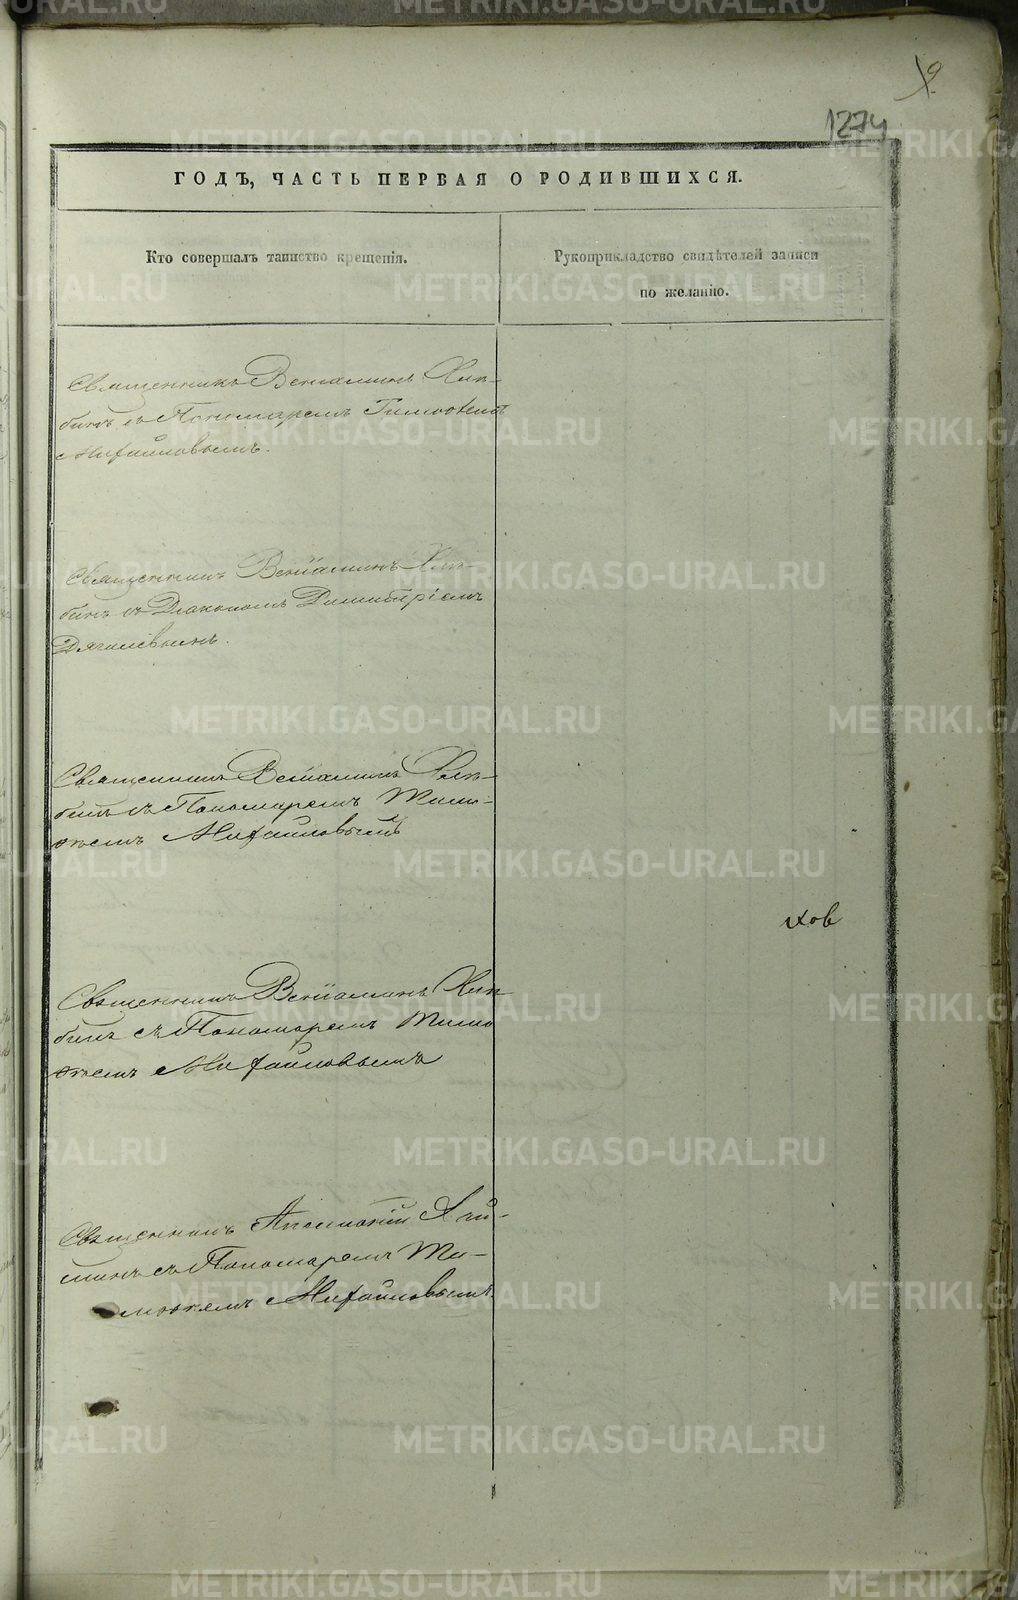 9
1274
ГОДЪ, ЧАСТЬ ПЕРВАЯ О РОДИВШИХСЯ.
Кто совершалъ таинство крещенія.
Рукоприкладство свидѣтелей записи
по желанію.
Священникъ Веніаминъ Хлѣ-
бинъ съ Пономаремъ Тимоѳеемъ
Михайловымъ.
Священникъ Веніаминъ Хлѣ-
бинъ съ Діакономъ Димитріемъ
Дягилевымъ.
Священникъ Веніаминъ Хлѣ-
бинъ съ Пономаремъ Тимо-
ѳеемъ Михайловымъ
Священникъ Веніаминъ Хлѣ
бинъ съ Пономаремъ Тимо
ѳеемъ Михайловымъ
Священникъ
съ Пономаремъ Ти-
моѳеемъ Михайловымъ.
METRIKI.GASO-URAL.RU